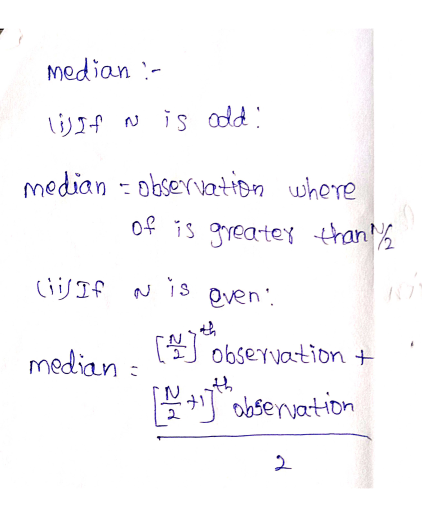 median :-
(i) If N is odd:
median = observation where
of is greater than N/2
(ii) If N is even:
median = [N/2]th observation +
[N/2 +1]th observation
2